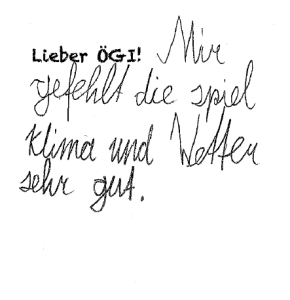 Lieber ÖGI! Mir
gefehlt die spiel
Klima und Wetter
sehr gut.